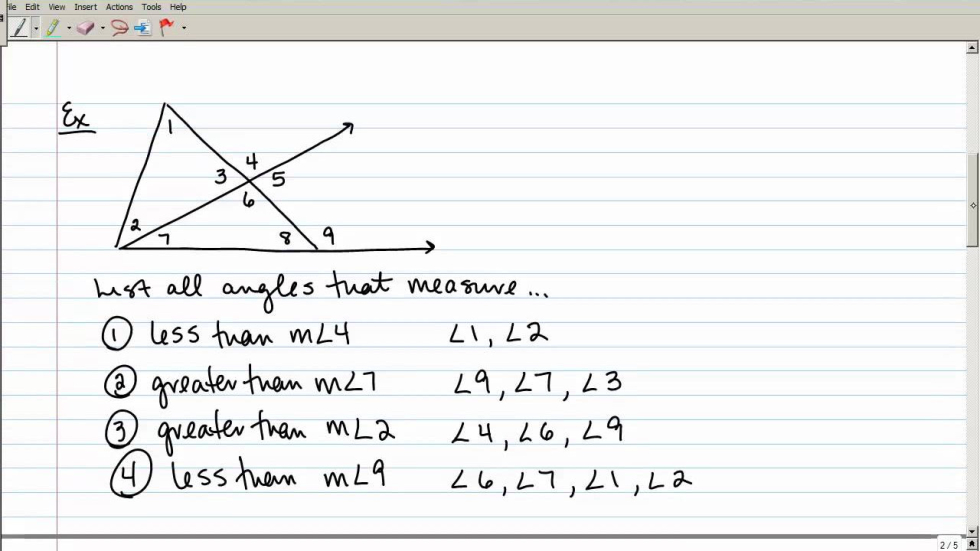 File Edit View Insert Actions Tools Help
Ex
1
4
3 5
6
2
7 8 9
List all angles that measure...
① less than m∠4 ∠1, ∠2
② greater than m∠7 ∠9, ∠7, ∠3
③ greater than m∠2 ∠4, ∠6, ∠9
④ less than m∠9 ∠6, ∠7, ∠1, ∠2
2 / 5